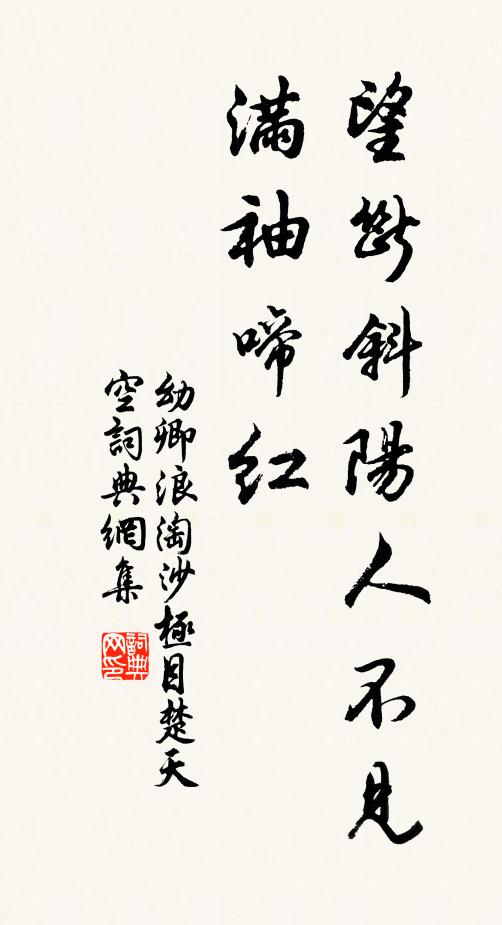 望斷斜陽人不見
滿袖啼紅
幼卿浪淘沙極目楚天
空詞典網集
詞典
网印